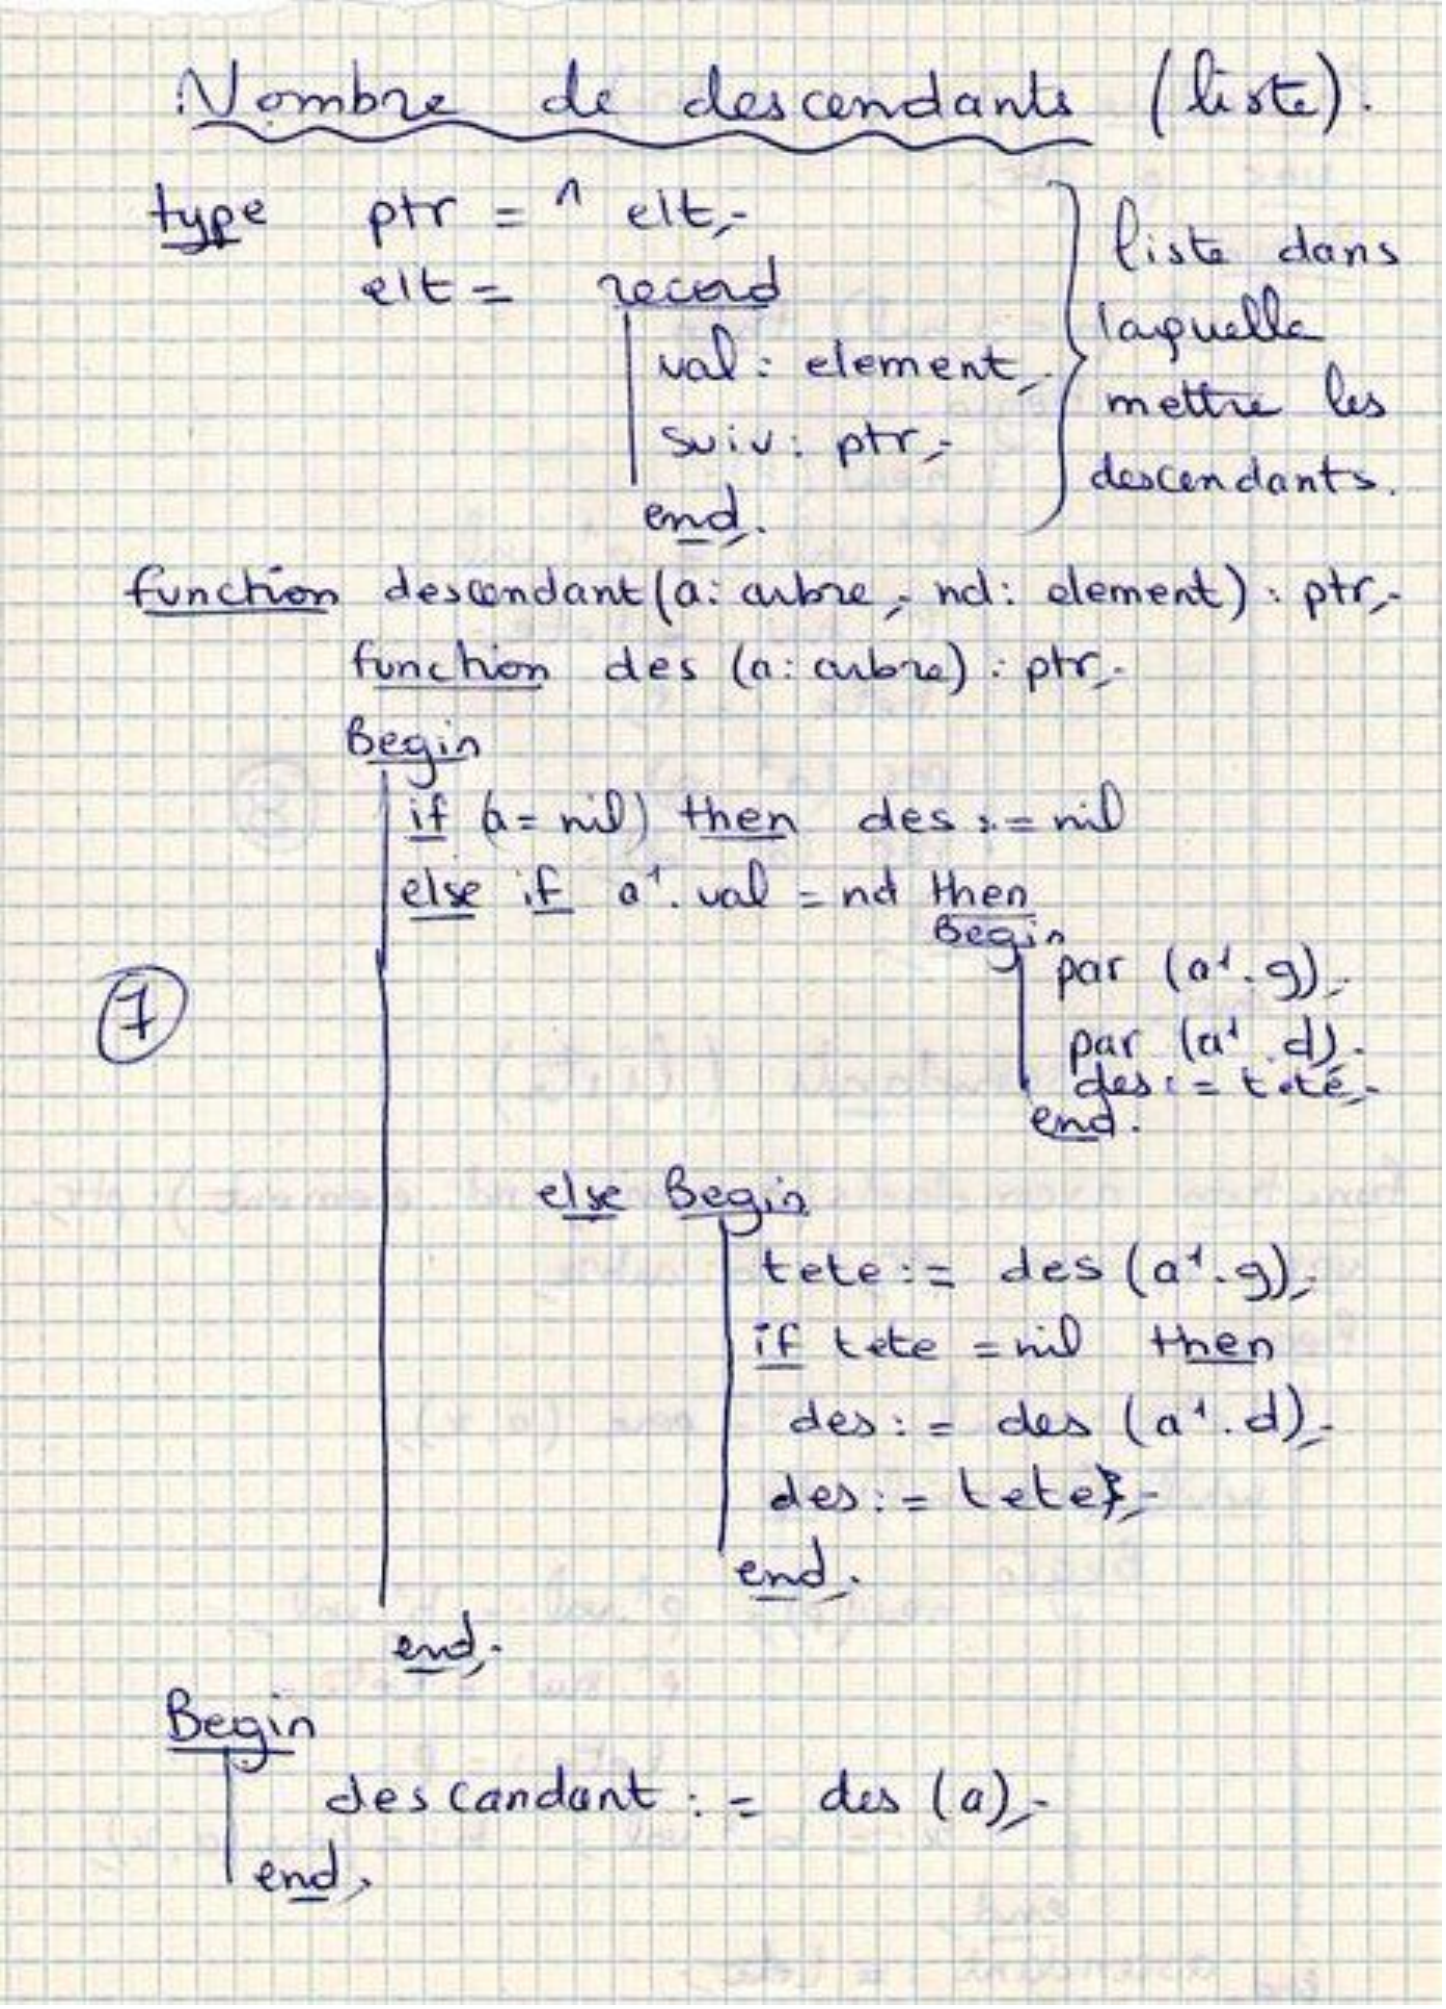 Nombre de descendants (liste).
type ptr = ^ elt;
elt = record
val : element;
suiv : ptr;
end;
liste dans
laquelle
mettre les
descendants.
function descendant (a : arbre ; nd : element) : ptr;
function des (a : arbre) : ptr;
Begin
if (a = nil) then des := nil
else if a^.val = nd then
Begin
par (a^.g);
par (a^.d);
des := tete;
end.
7
else Begin
tete := des (a^.g);
if tete = nil then
des := des (a^.d);
des := tete;
end.
end;
Begin
descandant := des (a);
end;